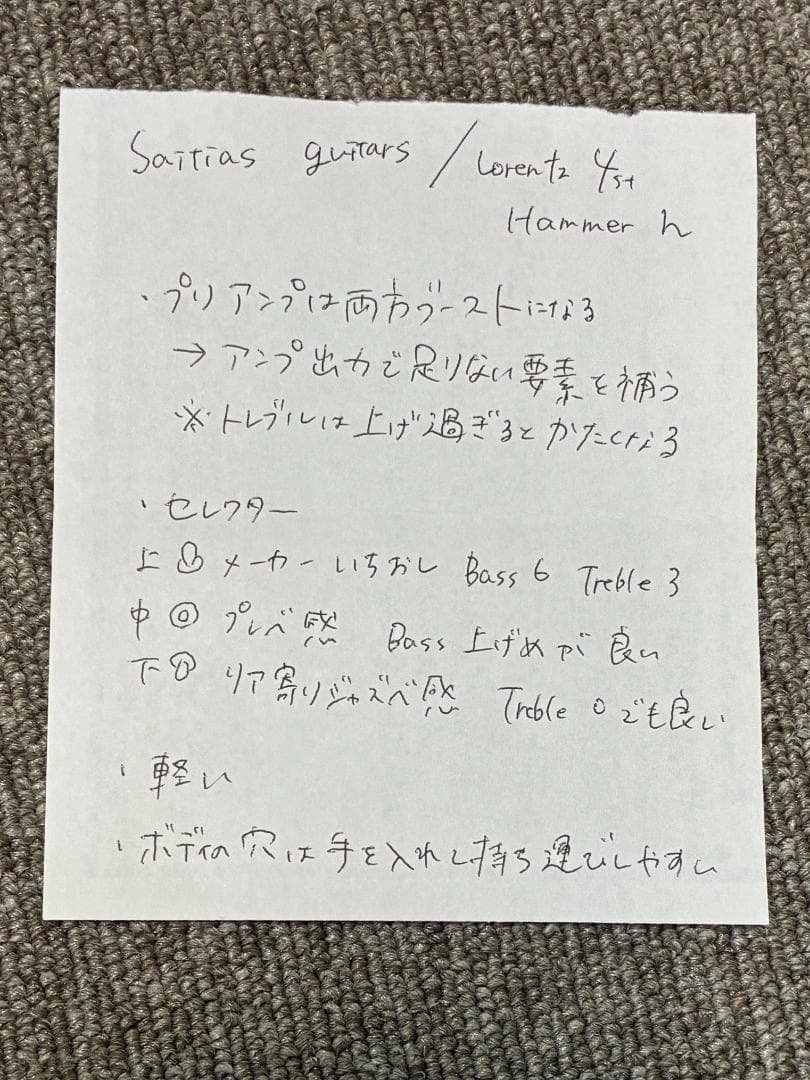 Saitias guitars / Lorentz 4st
Hammer h
・プリアンプは両方ブーストになる
→ アンプ出力で足りない要素を補う
※トレブルは上げ過ぎるとかたくなる
・セレクター
上 メーカーいちおし Bass 6 Treble 3
中 ◎ プレベ感 Bass 上げめが良い
下 リア寄りジャズベ感 Treble 0でも良い
・軽い
・ボディの穴は手を入れて持ち運びしやすい